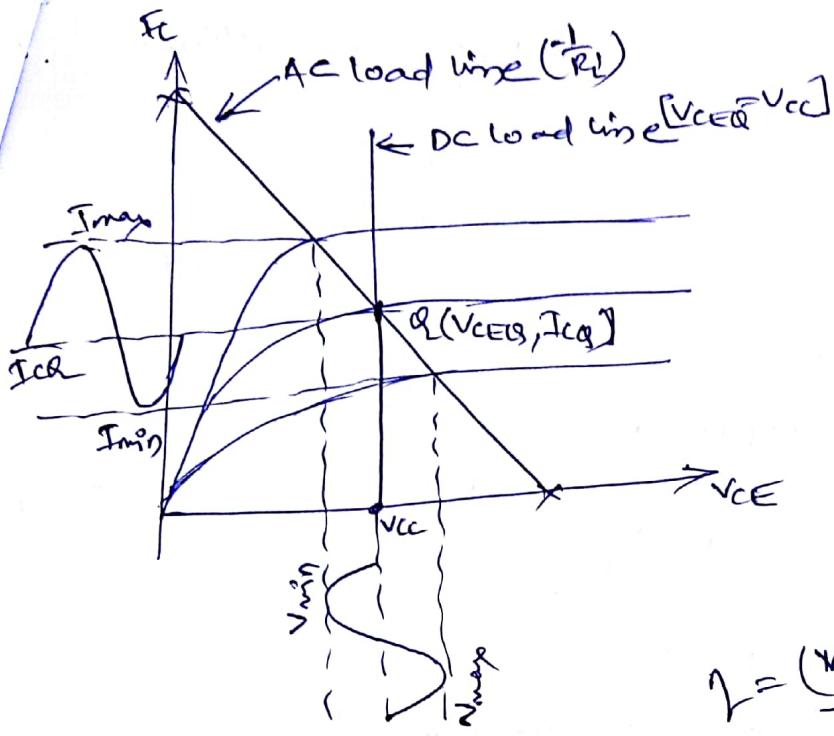 Ic
AC load line (-1/RL')
← DC load line [VCEQ=VCC]
Imax
Q(VCEQ, ICQ]
ICQ
Imin
VCE
VCC
Vmin
Vmax
η = (